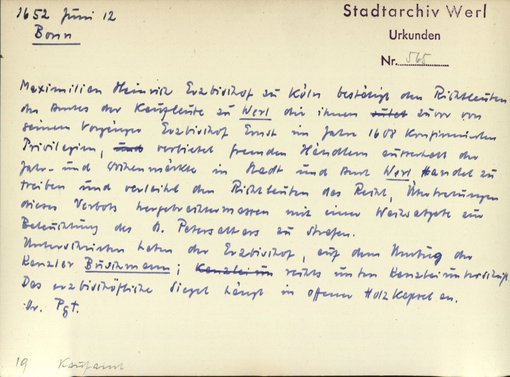 1652 Juni 12
Bonn
Stadtarchiv Werl
Urkunden
Nr. 565
Maximilian Heinrich Erzbischof zu Köln bestätigt den Richtleuten
des Amtes der Kaufleute zu Werl die ihnen zuvor von
seinem Vorgänger Erzbischof Ernst im Jahre 1608 konfirmierten
Privilegien, und verbietet fremden Händlern ausserhalb der
Jahr- und Wochenmärkte in Stadt und Amt Werl Handel zu
treiben und verleiht den Richtleuten das Recht, Übertretungen
dieses Verbots hergebrachtermassen mit einer Wachsabgabe zur
Beleuchtung des St. Petersaltars zu strafen.
Unterschrieben haben der Erzbischof, auf dem Umbug der
Kanzler Buschmann; Kanzleium rechts unten Kanzleiunterschrift.
Das erzbischöfliche Siegel hängt in offener Holzkapsel an.
Or. Pgt.
19 Kaufamt